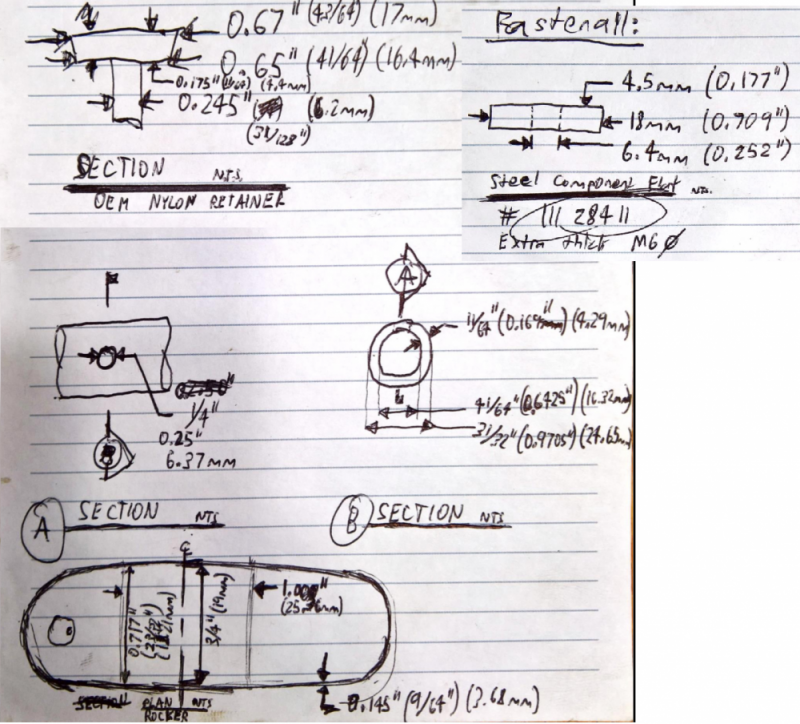 0.67" (43/64) (17mm)
0.65" (41/64) (16.4mm)
0.175" (11/64) (4.4mm)
0.245" (6.2mm)
(31/128")
SECTION N.T.S.
OEM NYLON RETAINER
Fastenall:
4.5mm (0.177")
18mm (0.709")
6.4mm (0.252")
Steel Component NTS.
# 11128411
Extra thick M6 Ø
A
11/64" (4.29mm)
41/64" (0.6425") (16.32mm)
31/32" (0.9705") (24.65mm)
1/4"
0.25"
6.37mm
B
A SECTION NTS
B SECTION NTS
1.00
0.717"
3/4" (19mm)
PLAN NTS
ROCKER
0.145" (9/64") (3.68mm)